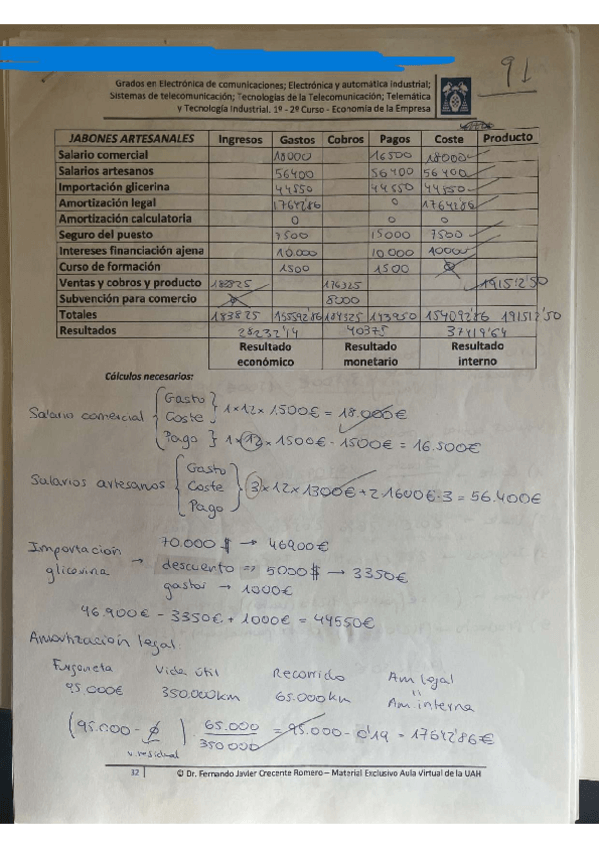 91
Grados en Electrónica de comunicaciones; Electrónica y automática Industrial;
Sistemas de telecomunicación; Tecnologías de la Telecomunicación; Telemática
y Tecnología Industrial. 1º - 2º Curso - Economía de la Empresa
JABONES ARTESANALES Ingresos Gastos Cobros Pagos Coste Producto
Salario comercial 18000 16500 18000
Salarios artesanos 56400 56400 56400
Importación glicerina 44550 44550 44550
Amortización legal 17642'86 0 17642'86
Amortización calculatoria 0 0 0
Seguro del puesto 7500 15000 7500
Intereses financiación ajena 10.000 10000 10000
Curso de formación 1500 1500
Ventas y cobros y producto 183825 176325 191512'50
Subvención para comercio 8000
Totales 183825 155592'86 143950 154092'86 191512'50
Resultados 28232'14 40375 37419'64
Resultado económico Resultado monetario Resultado interno
Cálculos necesarios:
Salario comercial { Gasto
Coste } 1x12x1.500€ = 18.000€
Pago } 1x12x1500€ - 1500€ = 16.500€
Salarios artesanos { Gasto
Coste } 3x12x1300€ + 2·1600€·3 = 56.400€
Pago
Importación glicerina → 70.000 $ → 46900€
descuento => 5000$ → 3350€
gastos → 1000€
46.900€ - 3350€ + 1000€ = 44550€
Amortización legal
Furgoneta Vida útil Recorrido Am legal
95.000€ 350.000km 65.000km "
Am. interna
(95.000 - ∅) 65.000/350000 = 95.000 - 0'19 = 17642'86€
v. residual
12 | © Dr. Fernando Javier Crecente Romero – Material Exclusivo Aula Virtual de la UAH